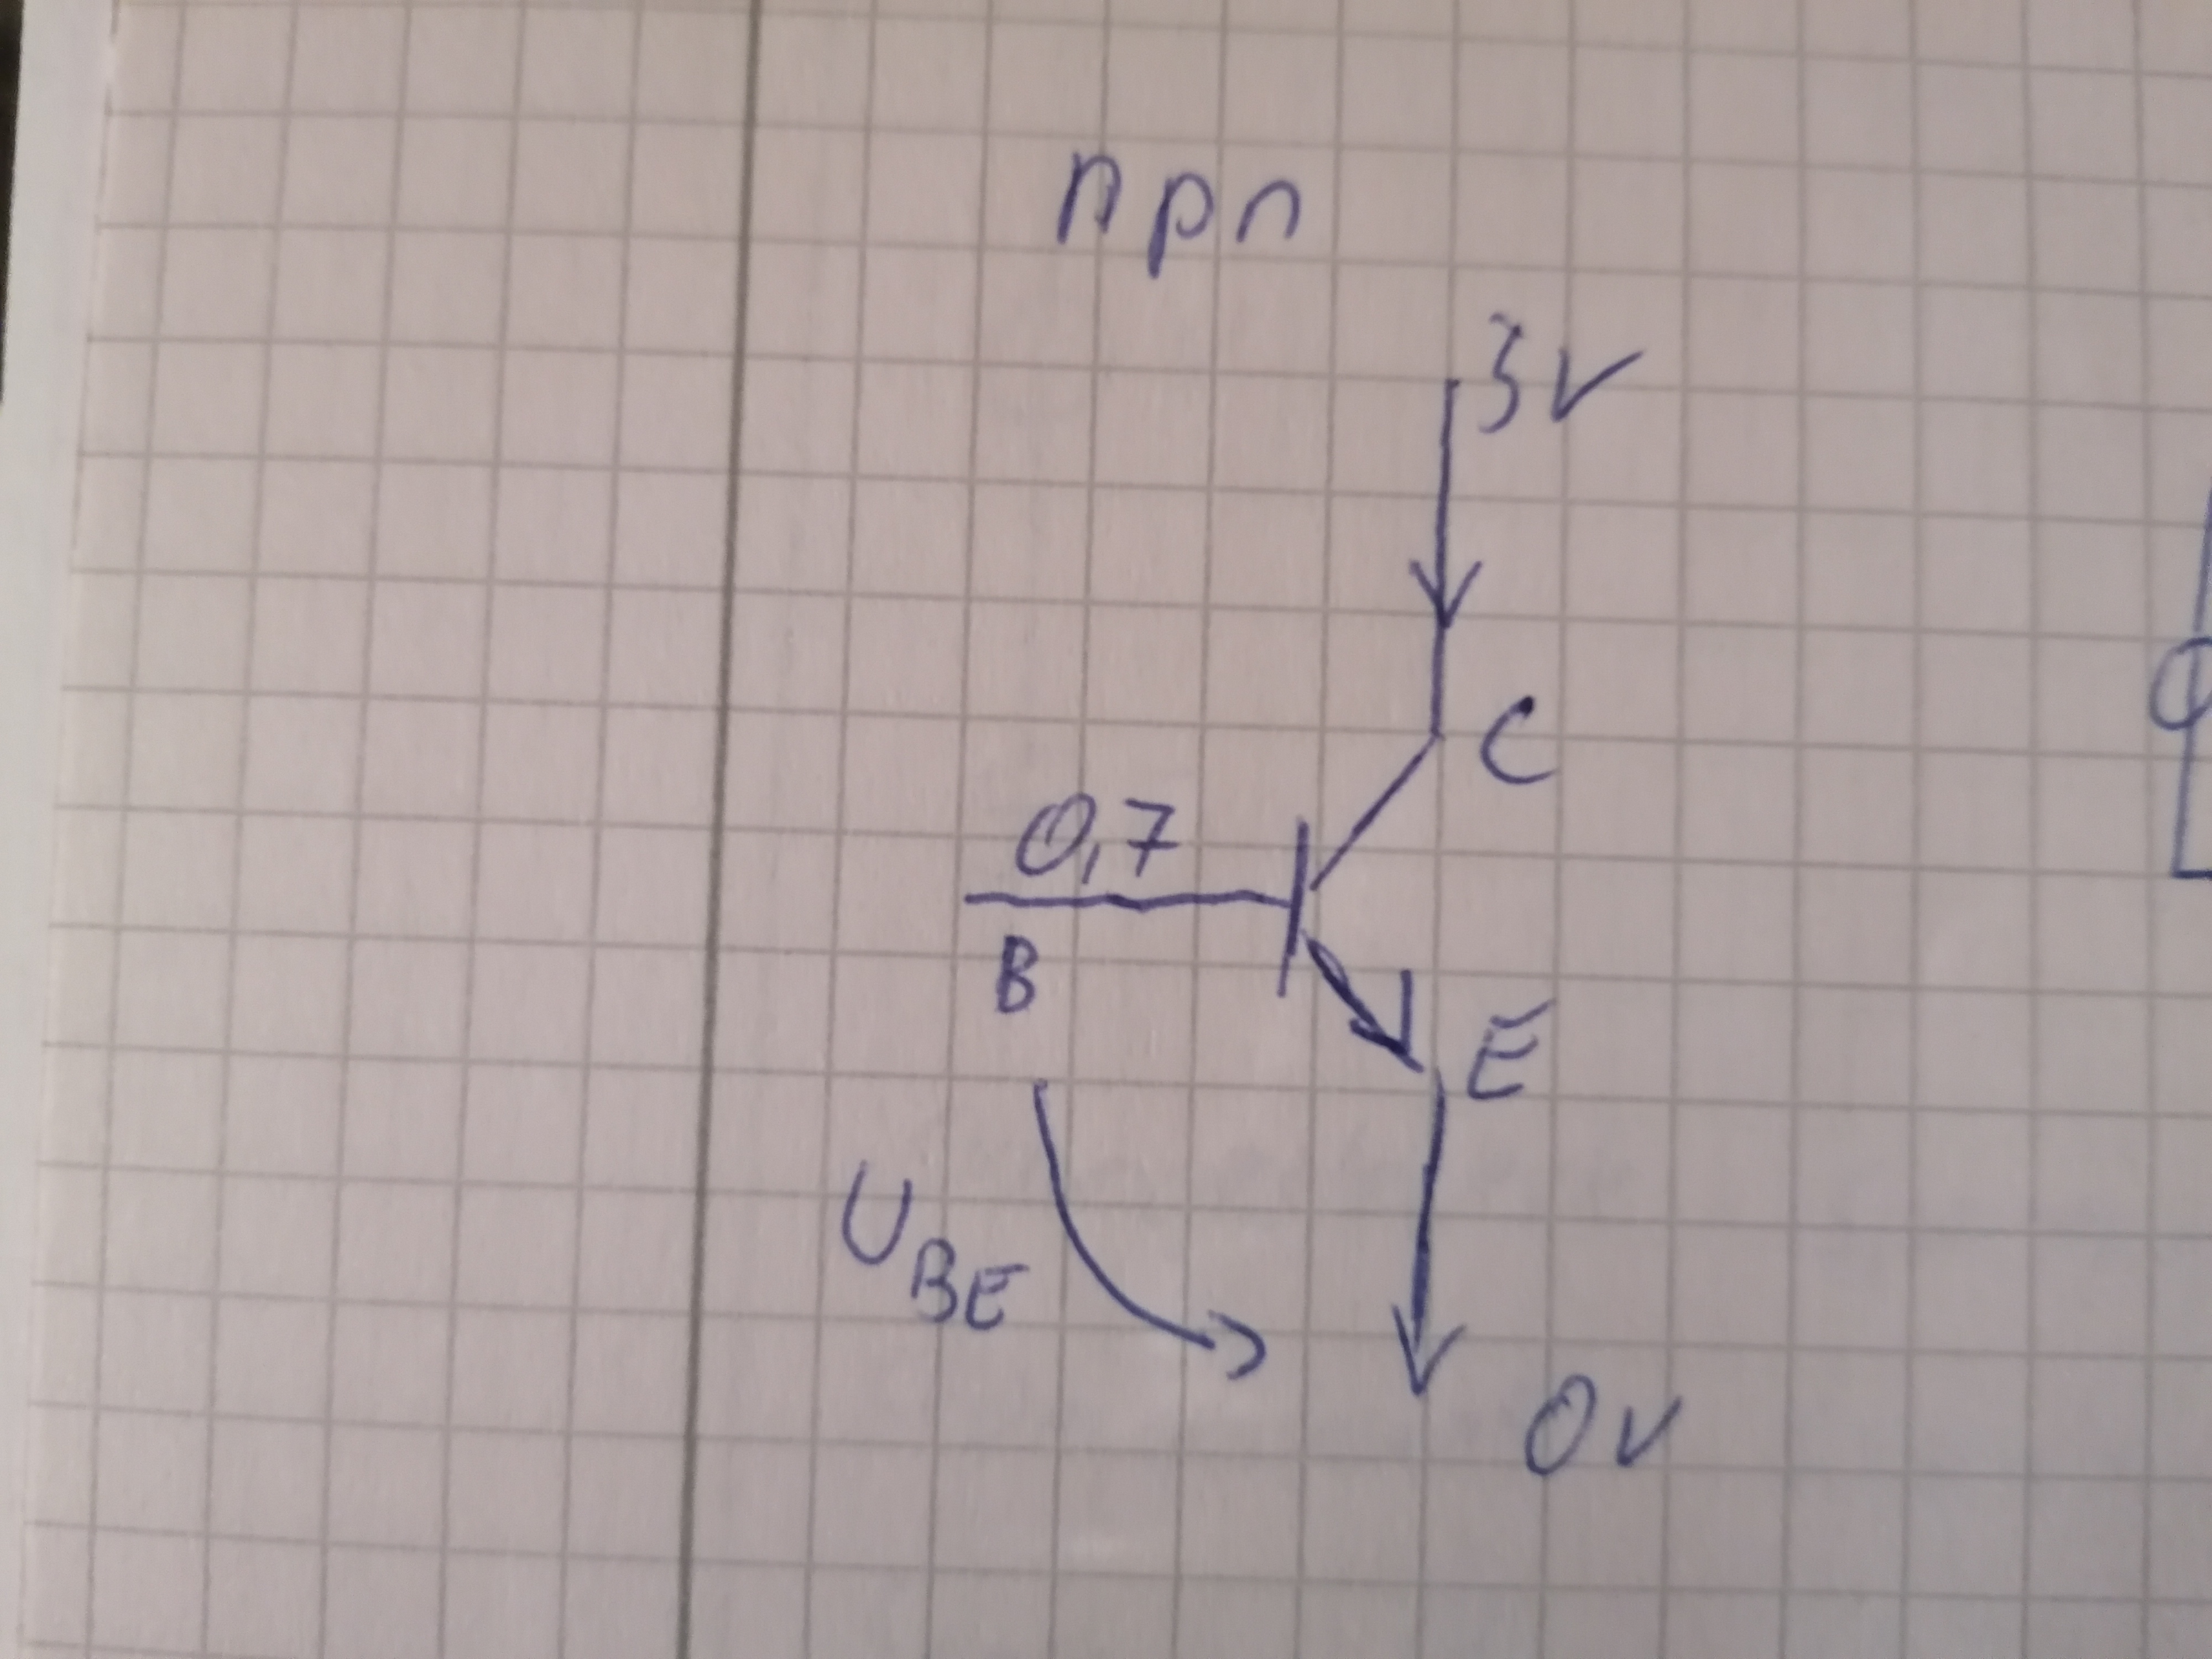 npn
3V
C
0,7
B
E
UBE
0V